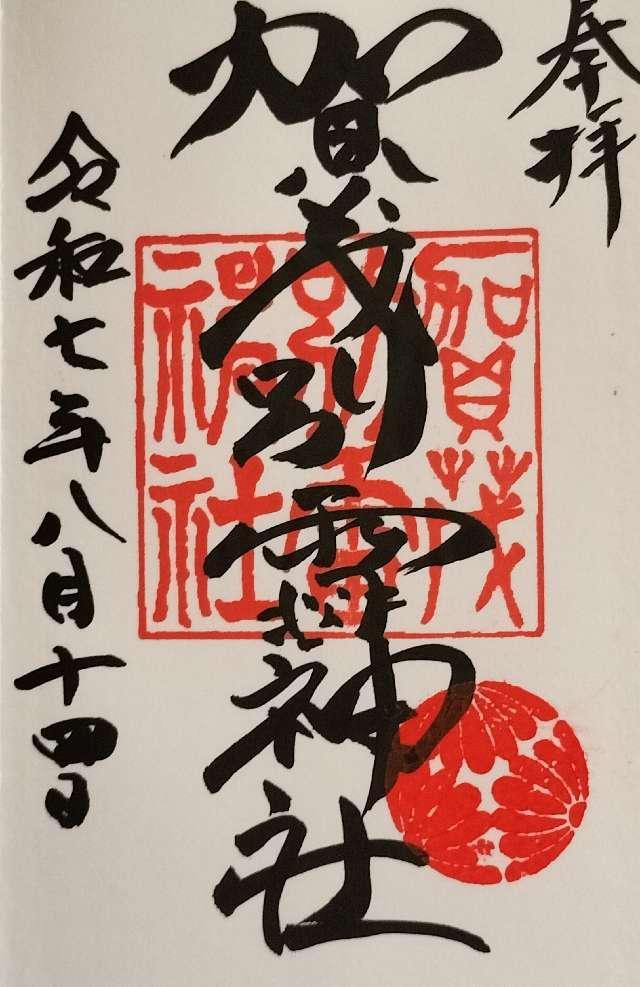 奉拝
賀茂別雷神社
賀茂
別雷
神社
令和七年八月十四日